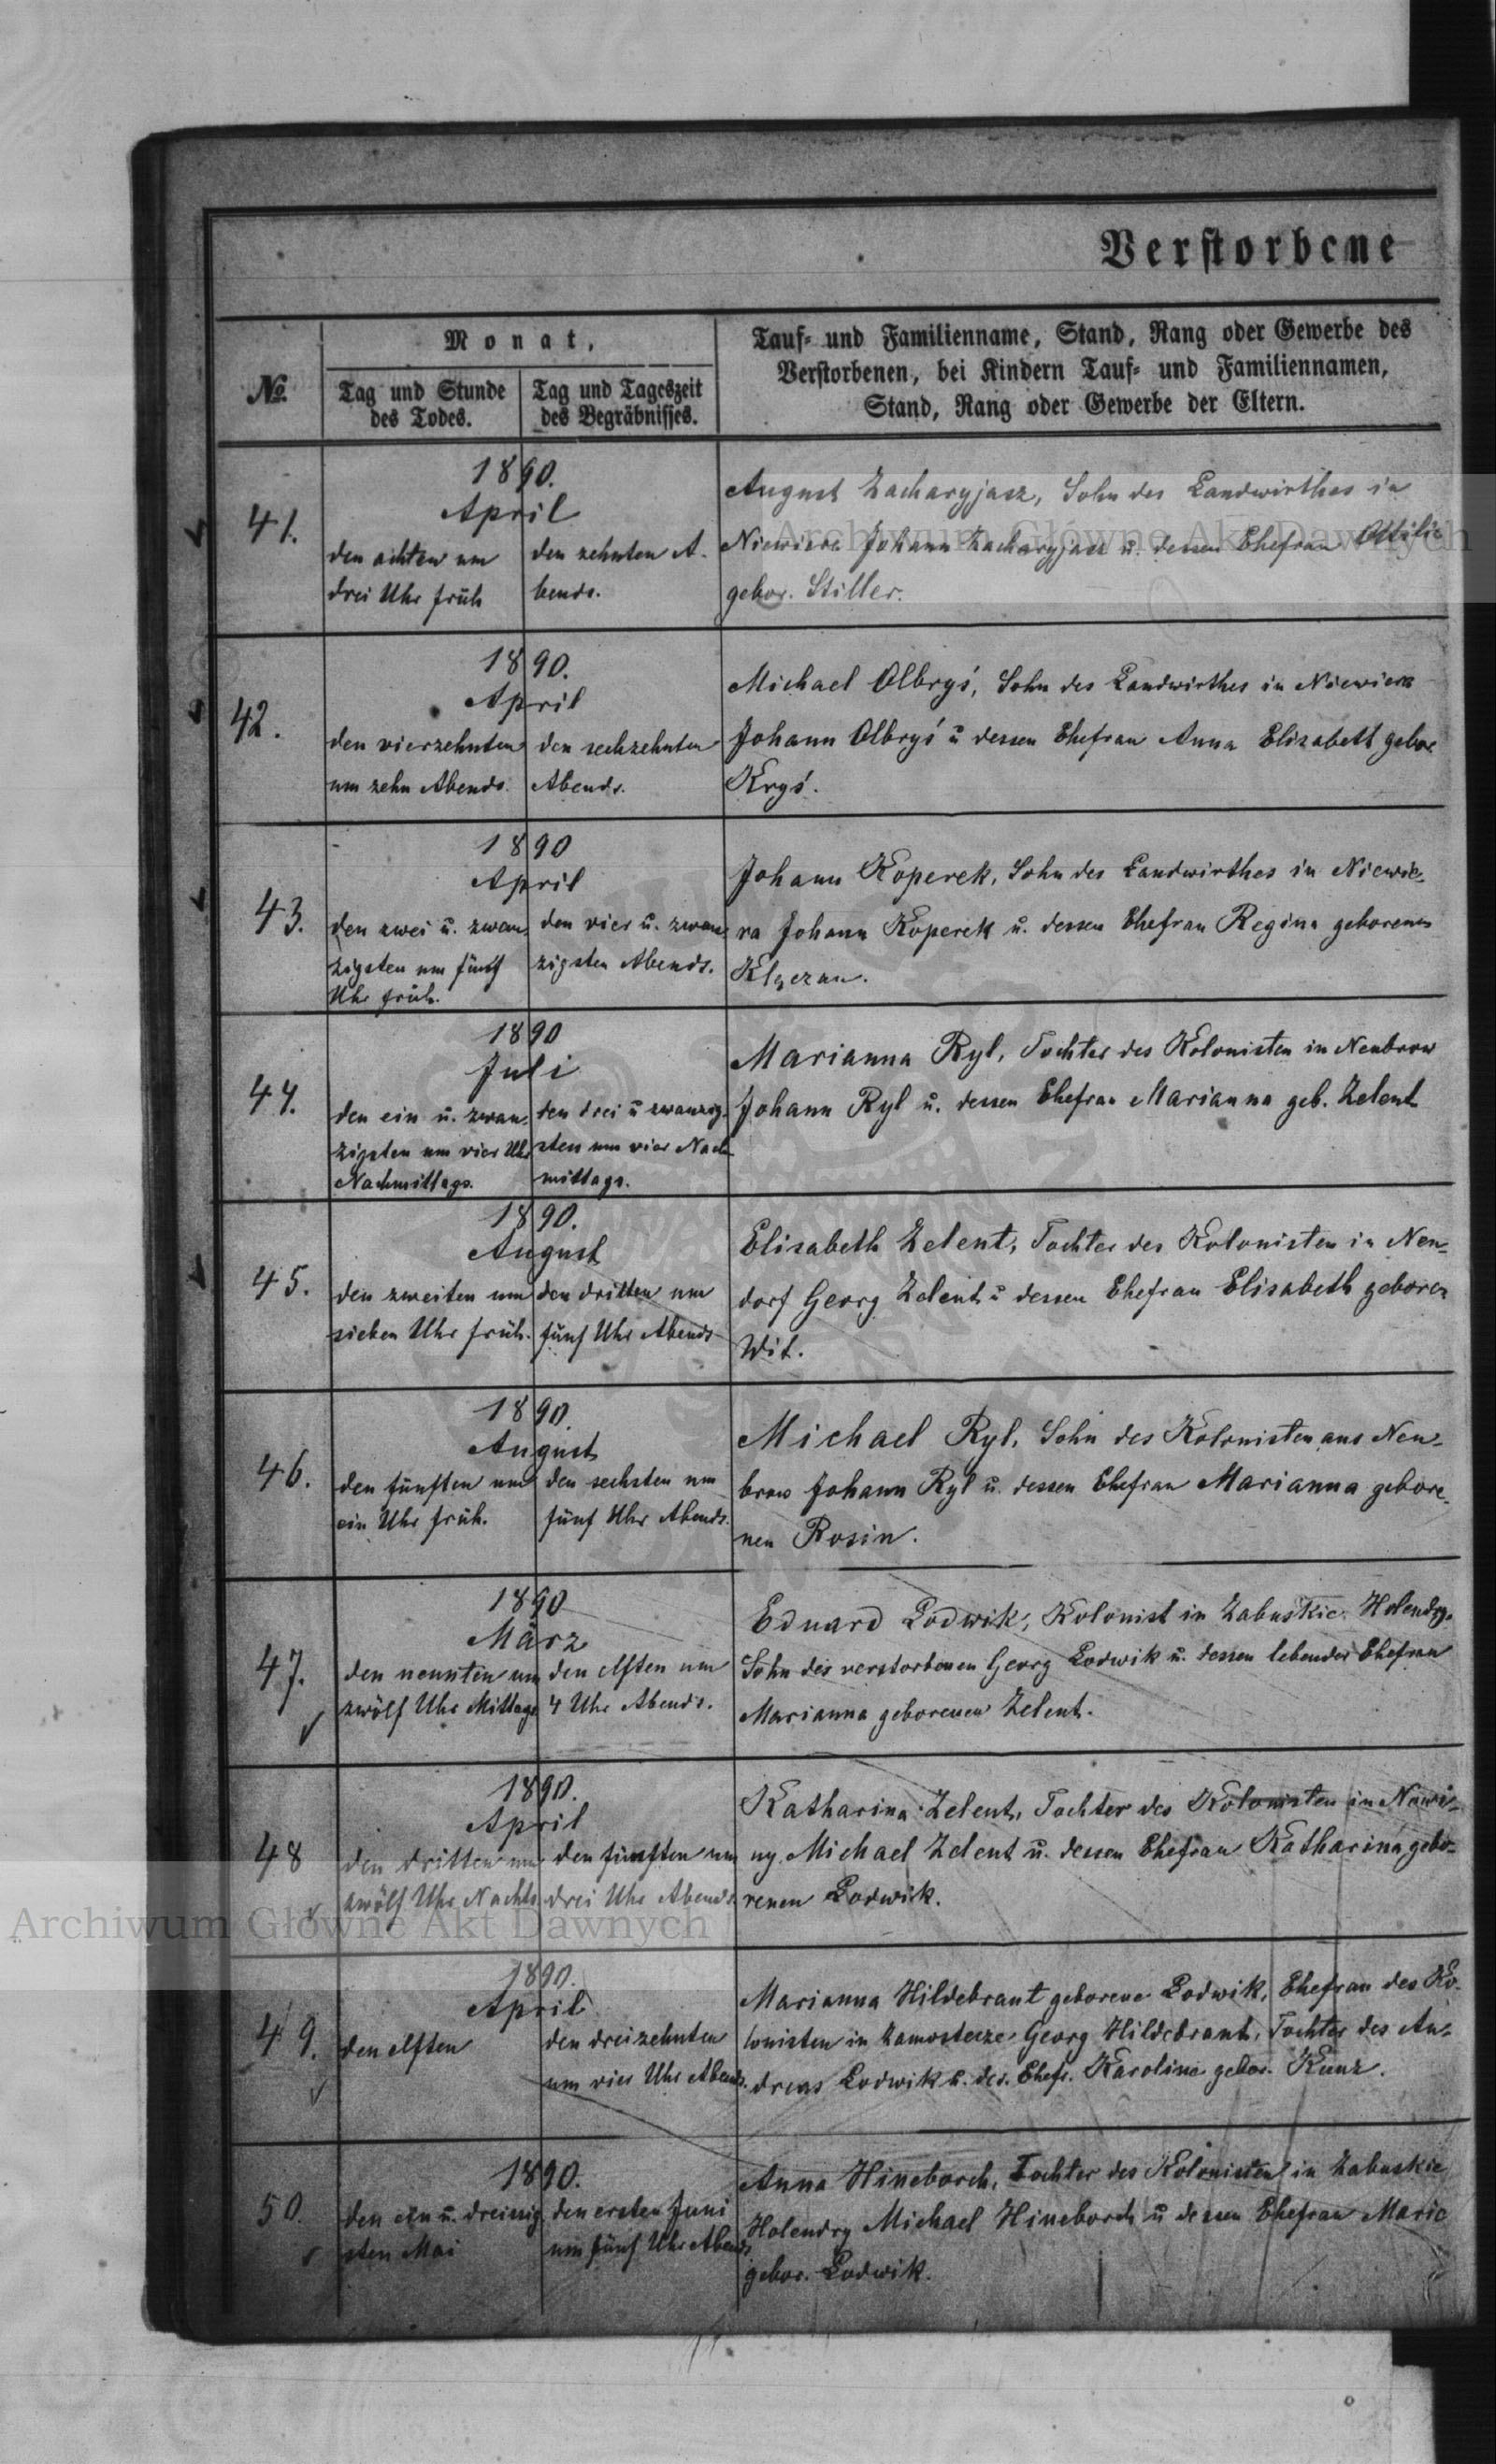 Verstorbene
No.
Monat,
Tag und Stunde
des Todes.
Tag und Tageszeit
des Begräbnisses.
Tauf- und Familienname, Stand, Rang oder Gewerbe des
Verstorbenen, bei Kindern Tauf- und Familiennamen,
Stand, Rang oder Gewerbe der Eltern.
41.
1890.
April
den achten um
drei Uhr früh
den zehnten A-
bends.
August Zacharyjasz, Sohn des Landwirthes in
Niewiera Johann Zacharyjasz u. dessen Ehefrau Ottilie
gebor. Stiller.
42.
1890.
April
den vierzehnten
um zehn Abends.
den sechzehnten
Abends.
Michael Olbryś, Sohn des Landwirthes in Niewiera
Johann Olbryś u dessen Ehefrau Anna Elisabeth gebor
Kryś.
43.
1890
April
den zwei u. zwan-
zigsten um fünf
Uhr früh.
den vier u. zwan
zigsten Abends.
Johann Koperek, Sohn des Landwirthes in Niewie-
ra Johann Koperek u. dessen Ehefrau Regina geborenen
44.
1890
Juli
den ein u. zwan-
zigsten um vier Uhr
Nachmittags.
den drei u zwanzig-
sten um vier Nach
mittags.
Marianna Ryl, Tochter des Kolonisten in Neubrow
Johann Ryl u. dessen Ehefrau Marianna geb. Zelent
45.
1890.
August
den zweiten um
sieben Uhr früh.
den dritten um
fünf Uhr Abends
Elisabeth Zelent, Tochter des Kolonisten in Neu-
dorf Georg Zelent u dessen Ehefrau Elisabeth geboren
Wit.
46.
1890.
August
den fünften um
ein Uhr früh.
den sechsten um
fünf Uhr Abends.
Michael Ryl, Sohn des Kolonisten aus Neu-
brow Johann Ryl u. dessen Ehefrau Marianna gebore-
nen Rosin.
47.
1890
März
den neunten um
zwölf Uhr Mittags
den elften um
4 Uhr Abends.
Eduard Lodwik, Kolonist in Zabuskie Holendry.
Sohn des verstorbenen Georg Lodwik u. dessen lebender Ehefrau
Marianna geborenen Zelent.
48
1890.
April
den dritten um
zwölf Uhr Nachts
den fünften um
drei Uhr Abends.
Katharina Zelent, Tochter des Kolonisten in Nowi-
ny Michael Zelent u. dessen Ehefrau Katharina gebo-
renen Lodwik.
49.
1890.
April
den elften
den dreizehnten
um vier Uhr Abends.
Marianna Hildebrant geborene Lodwik, Ehefrau des Ko-
lonisten in Zamostecze Georg Hildebrant, Tochter des An-
dreas Lodwik u. des. Ehefr. Karoline gebor. Kunz.
50.
1890.
den ein u. dreissig
sten Mai
den ersten Juni
um fünf Uhr Abends
Anna Hineborch, Tochter des Kolonisten in Zabuskie
Holendry Michael Hineborch u dessen Ehefrau Marie
gebor. Lodwik.
Archiwum Główne Akt Dawnych
Archiwum Główne Akt Dawnych